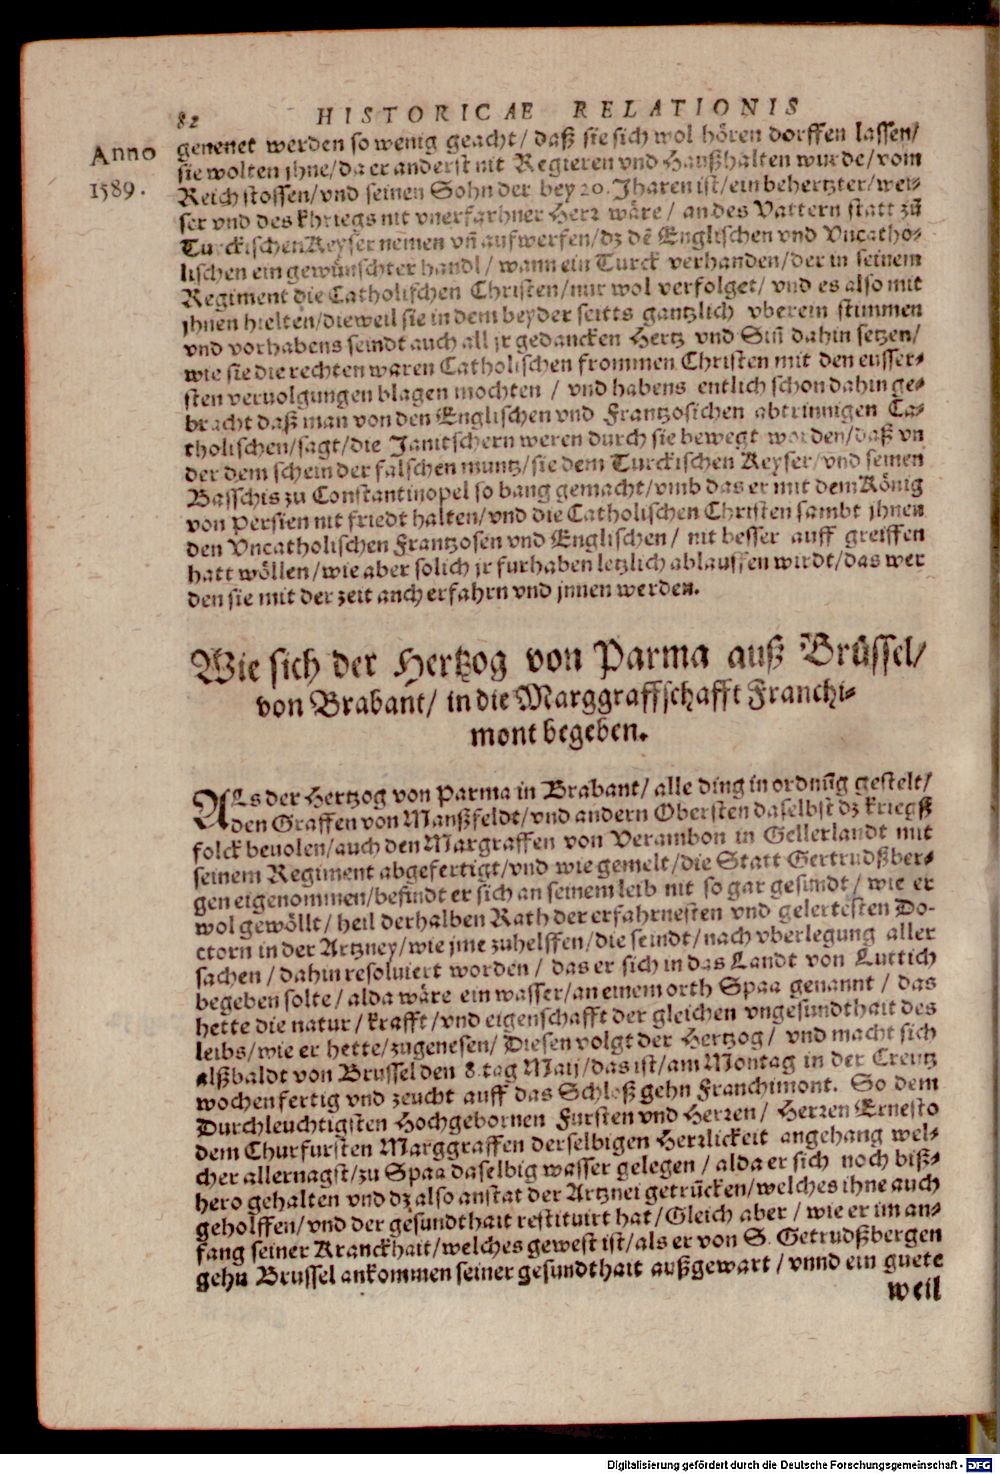 82 HISTORICAE RELATIONIS
Anno
1589.
genenet werden so wenig geacht/ daß sie sich wol hören dorffen lassen/
sie wolten jhne/da er anderst nit Regieren vnd Haußhalten wurde/vom
Reich stossen/vnd seinen Sohn der bey 20. Jharen ist/ein behertzter/wei-
ser vnd des khriegs nit vnerfarhner Herr wäre/ an des Vattern statt zũ
Turckischen Keyser nemen vñ aufwerfen/dz dẽ Englischen vnd Vncatho-
lischen ein gewünschter handl/ wann ein Turck verhanden/der in seinem
Regiment die Catholischen Christen/nur wol verfolget/ vnd es also mit
jhnen hielten/dieweil sie in dem beyder seitts gantzlich vberein stimmen
vnd vorhabens seindt auch all jr gedancken Hertz vnd Siñ dahin setzen/
wie sie die rechten waren Catholischen frommen Christen mit den eusser-
sten veruolgungen blagen mochten / vnd habens entlich schon dahin ge-
bracht daß man von den Englischen vnd Frantzosichen abtrinnigen Ca-
tholischen/sagt/die Janitschern weren durch sie bewegt worden/daß vn
der dem schein der falschen muntz/sie dem Turckischen Keyser/vnd seinen
Basschis zu Constantinopel so bang gemacht/vmb das er mit dem König
von Persien nit friedt halten/vnd die Catholischen Christen sambt jhnen
den Vncatholischen Frantzosen vnd Englischen/ nit besser auff greiffen
hatt wöllen/wie aber solich jr furhaben letzlich ablauffen wirdt/das wer
den sie mit der zeit auch erfahrn vnd jnnen werden.
Wie sich der Hertzog von Parma auß Brüssel/
von Brabant/ in die Marggraffschafft Franchi-
mont begeben.
ALs der Hertzog von Parma in Brabant/ alle ding in ordnũg gestelt/
den Graffen von Manßfeldt/vnd andern Obersten daselbst dz kriegß
folck beuolen/auch den Margraffen von Verambon in Gellerlandt mit
seinem Regiment abgefertigt/vnd wie gemelt/die Statt Gertrudßber-
gen eigenommen/befindt er sich an seinem leib nit so gar gesundt/ wie er
wol gewöllt/ heil derhalben Rath der erfahrnesten vnd gelertesten Do-
ctorn in der Artzney/wie jme zuhelffen/die seindt/nach vberlegung aller
sachen/dahin resoluiert worden/ das er sich in das Landt von Luttich
begeben solte/ alda wäre ein wasser/an einem orth Spaa genannt/ das
hette die natur/krafft/vnd eigenschafft der gleichen vngesundthait des
leibs/wie er hette/zugenesen/ Diesen volgt der Hertzog/ vnd macht sich
alßbaldt von Brussel den 8. tag Maij/das ist/am Montag in der Creutz
wochen fertig vnd zeucht auff das Schloß gehn Franchimont. So dem
Durchleuchtigsten Hochgebornen Fursten vnd Herren/ Herren Ernesto
dem Churfursten Marggraffen derselbigen Herrlickeit angehang wel-
cher allernagst/zu Spaa daselbig wasser gelegen / alda er sich noch biß-
hero gehalten vnd dz also anstat der Artznei getrũcken/welches ihne auch
geholffen/vnd der gesundthait restituirt hat/Gleich aber/ wie er im an-
fang seiner Kranckhait/welches gewest ist/als er von S. Getrudßbergen
gehn Brussel ankommen seiner gesundthait außgewart/ vnnd ein guete
weil
Digitalisierung gefördert durch die Deutsche Forschungsgemeinschaft - DFG